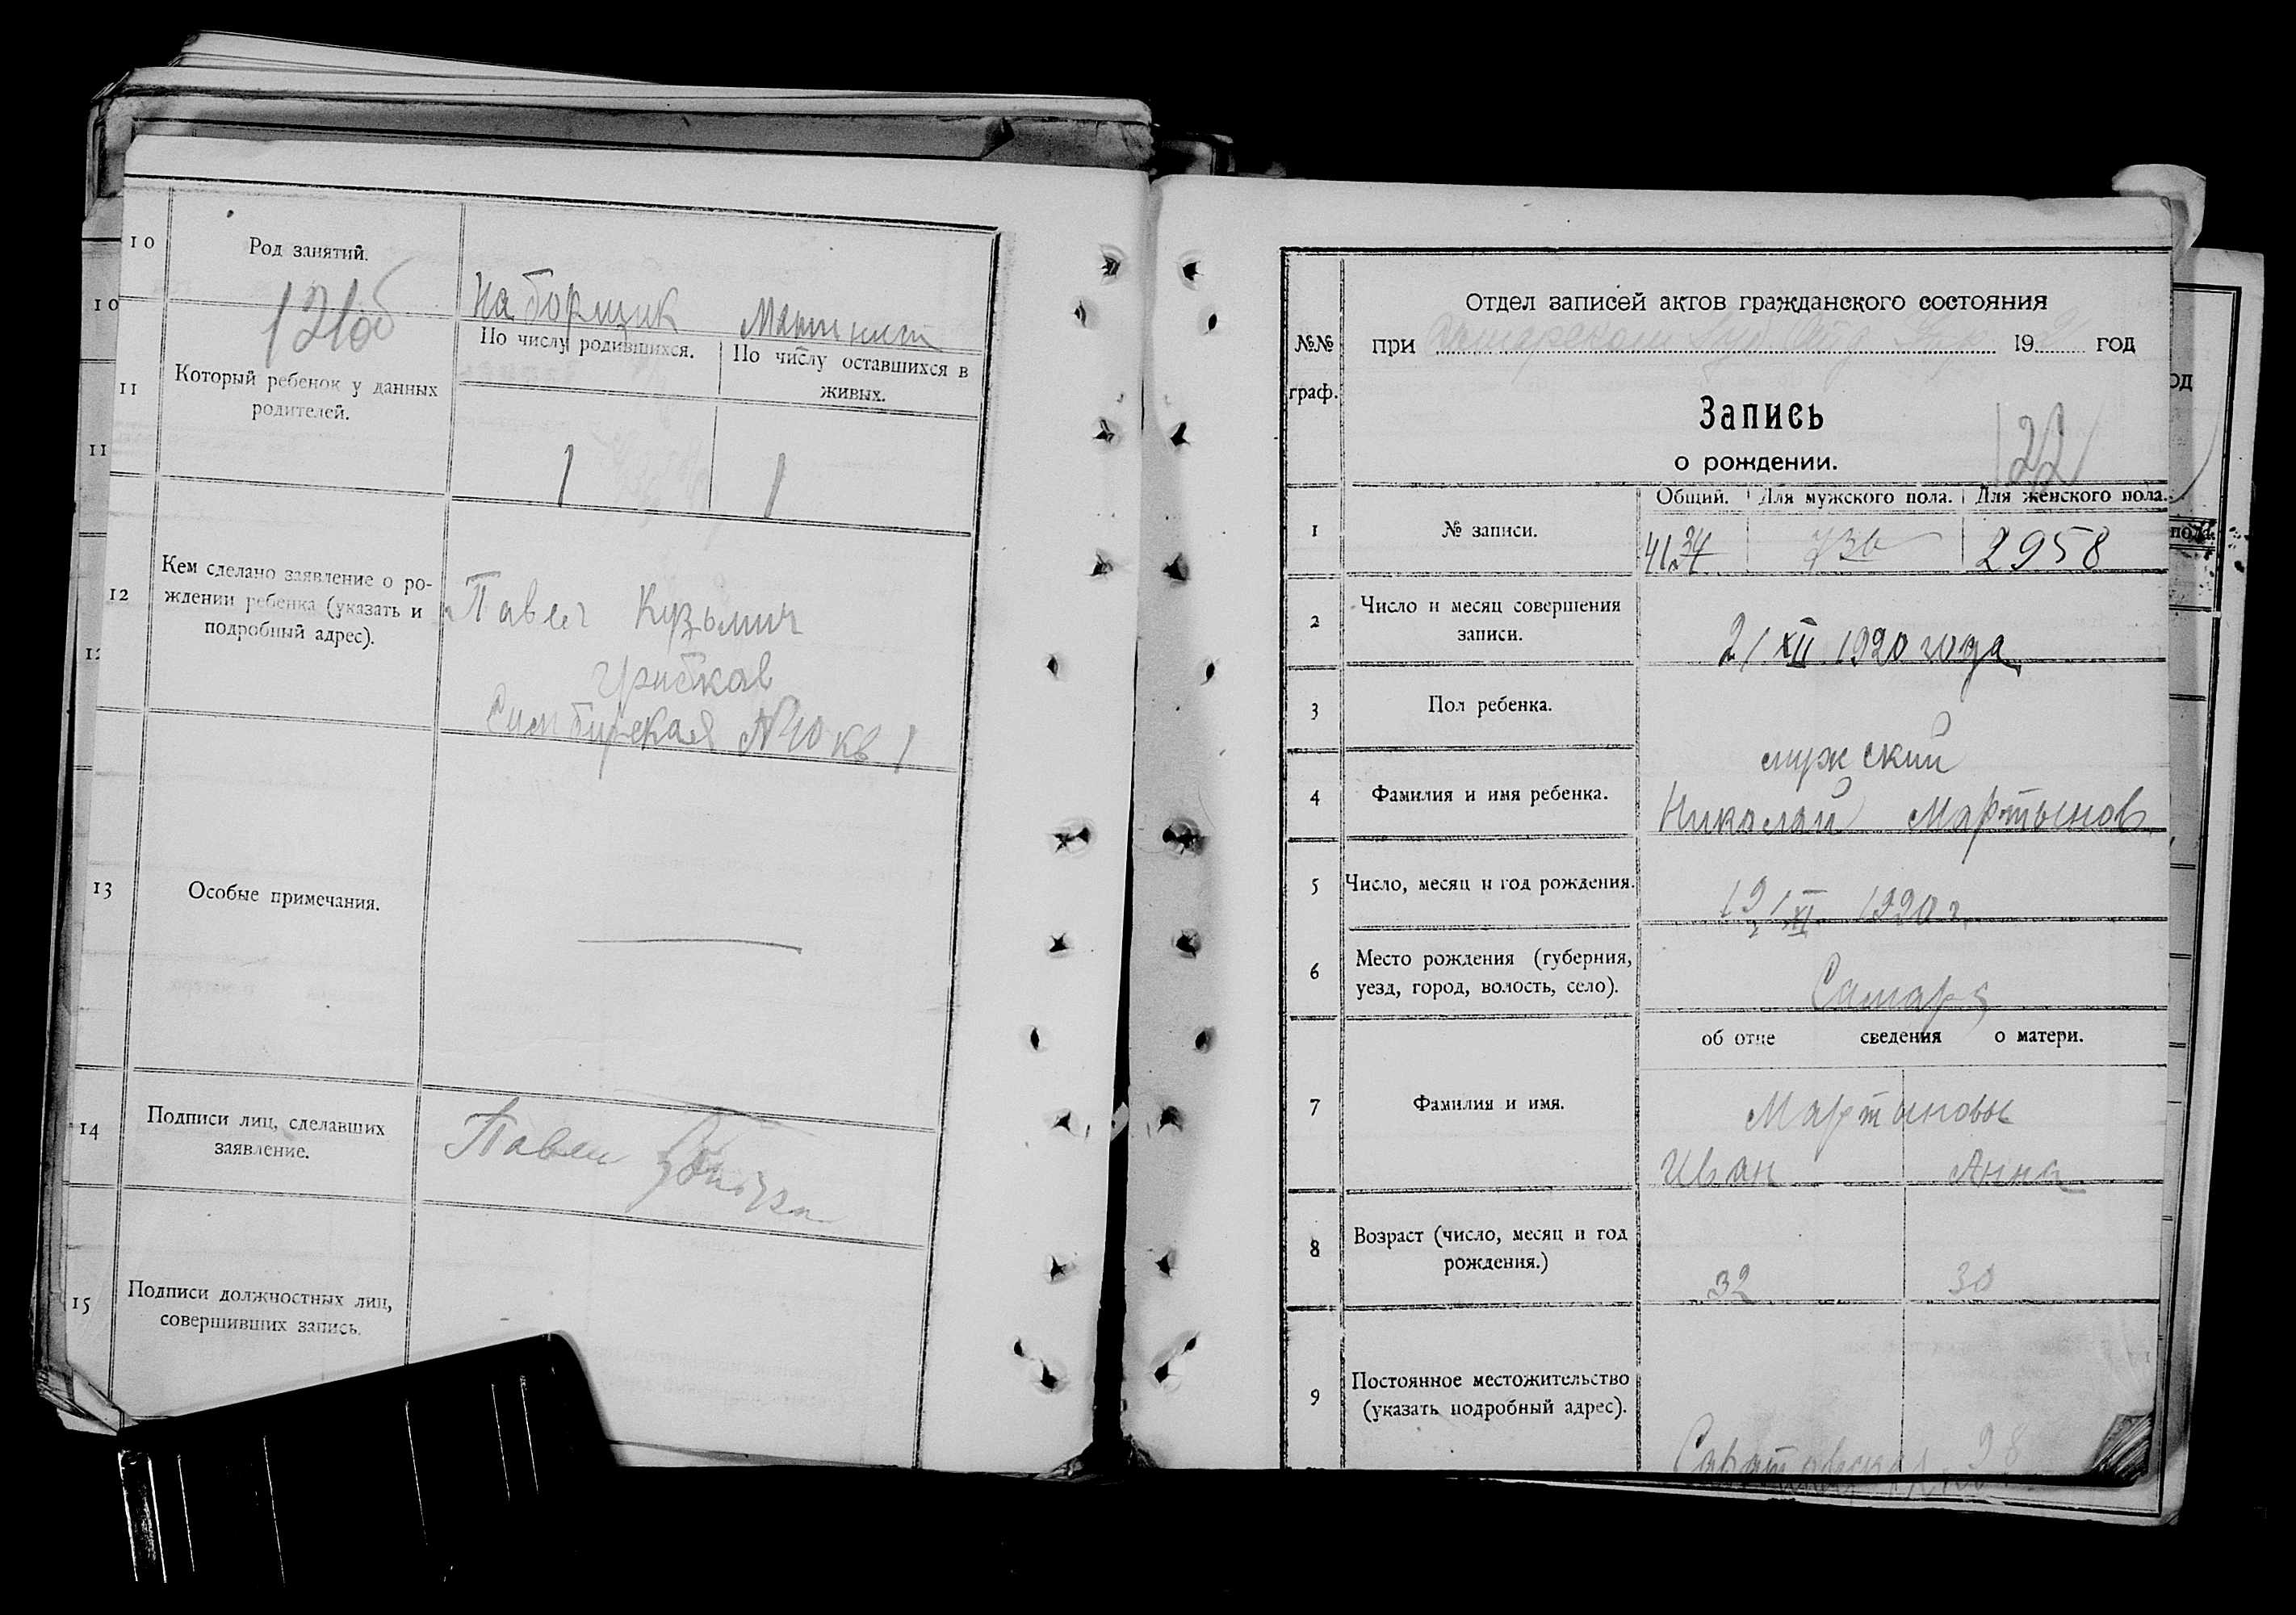 10
Род занятий.
Наборщик
121об
По числу родившихся.
По числу оставшихся в
живых.
11
Который ребенок у данных
родителей.
1
1
12
Кем сделано заявление о ро-
ждении ребенка (указать и
подробный адрес).
Павел Кузьмич
Грибков
Симбирская №40 кв 1
13
Особые примечания.
14
Подписи лиц, сделавших
заявление.
Павел
15
Подписи должностных лиц,
совершивших запись.
10
11
№№
граф.
Отдел записей актов гражданского состояния
при 19 год
Запись
о рождении.
122
1
№ записи.
Общий.
Для мужского пола.
Для женского пола.
4134
2958
2
Число и месяц совершения
записи.
21 XII 1920 года
3
Пол ребенка.
мужский
4
Фамилия и имя ребенка.
Николай Мартынов
5
Число, месяц и год рождения.
XI 1920 г
6
Место рождения (губерния,
уезд, город, волость, село).
Самара
об отце сведения о матери.
7
Фамилия и имя.
Мартыновы
Иван Анна
8
Возраст (число, месяц и год
рождения.)
32
30
9
Постоянное местожительство
(указать подробный адрес).
Саратовская